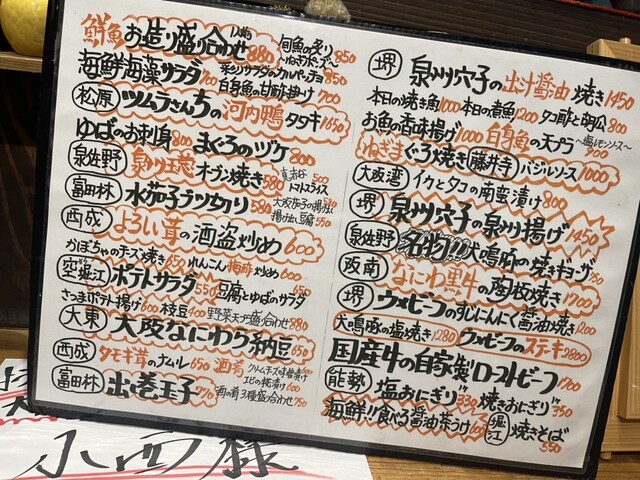 鮮魚 お造り盛り合わせ 1人前 880
旬魚の炙り 〜ねぎポン酢〜 850
海鮮海藻サラダ 700
彩りサラダのカルパッチョ 850
白身魚の甘酢掛け 700
松原 ツムラさんちの河内鴨タタキ 1650
ゆばのお刺身 800 まぐろのヅケ 800
泉佐野 泉州玉葱オーブン焼き 580
トマトスライス 500
富田林 水茄子ブツ切り 580
大阪茄子の揚げ出し
揚げ出し豆腐 550
西成 よろい茸の酒盗炒め 600
かぼちゃのチーズ焼き 650 れんこん梅酢炒め 600
空堀江 ポテトサラダ 550 豆腐とゆばのサラダ 650
さつまポテト揚げ 600 枝豆 400 野菜天プラ盛り合わせ 880
大東 大阪なにわっ納豆 650
西成 タモギ茸のナムル 650 酒肴 クリームチーズ味噌漬け 600
エビの糀漬け 600
富田林 出し巻玉子 770 酒の肴3種盛り合わせ 750
堺 泉州穴子の出汁醤油焼き 1450〜
本日の焼き魚 1000 本日の煮魚 1200 タコ酢と胡瓜 800
お魚の香味揚げ 1000 白身魚の天プラ 〜塩レモンソース〜 900
ねぎまぐろ焼き 藤井寺 バジルソース 1000
大阪湾 イカとタコの南蛮漬け 800
堺 泉州穴子の泉州揚げ 1450
泉佐野 名物!!犬鳴豚の焼きギョーザ 750
阪南 なにわ黒牛の陶板焼き 1700
堺 ウメビーフのすじにんにく醤油焼き 1200
犬鳴豚の塩焼き 1280 ウメビーフのステーキ 2800
国産牛の自家製ローストビーフ 1700
能勢 塩おにぎり 330 焼きおにぎり 350
海鮮!!食べる醤油茶うけ 600 堀江 焼きそば 550
小西